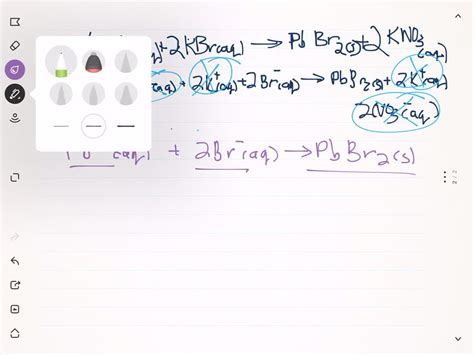 +2KBr(aq) → PbBr2(s)+2KNO3(aq)
(aq)+2K+(aq)+2Br-(aq) → PbBr2(s)+2K+(aq)
2NO3-(aq)
(aq) + 2Br-(aq) → PbBr2(s)
2/2